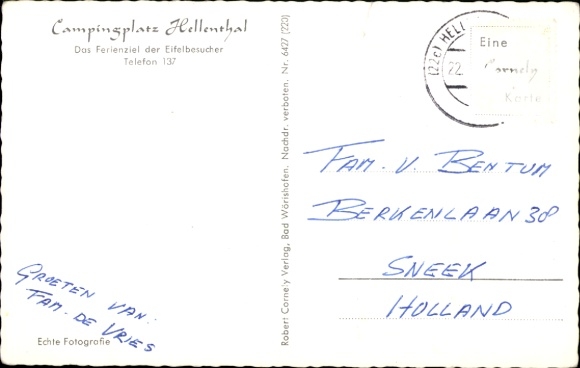 Campingplatz Hellenthal
Das Ferienziel der Eifelbesucher
Telefon 137
Groeten van:
Fam. de Vries
Echte Fotografie
Robert Cornely Verlag, Bad Wörishofen. Nachdr. verboten. Nr. 6427 (223)
(22c) HELL
22.
Eine
Cornely
Karte
Fam. v. Bentum
Berkenlaan 38
Sneek
Holland